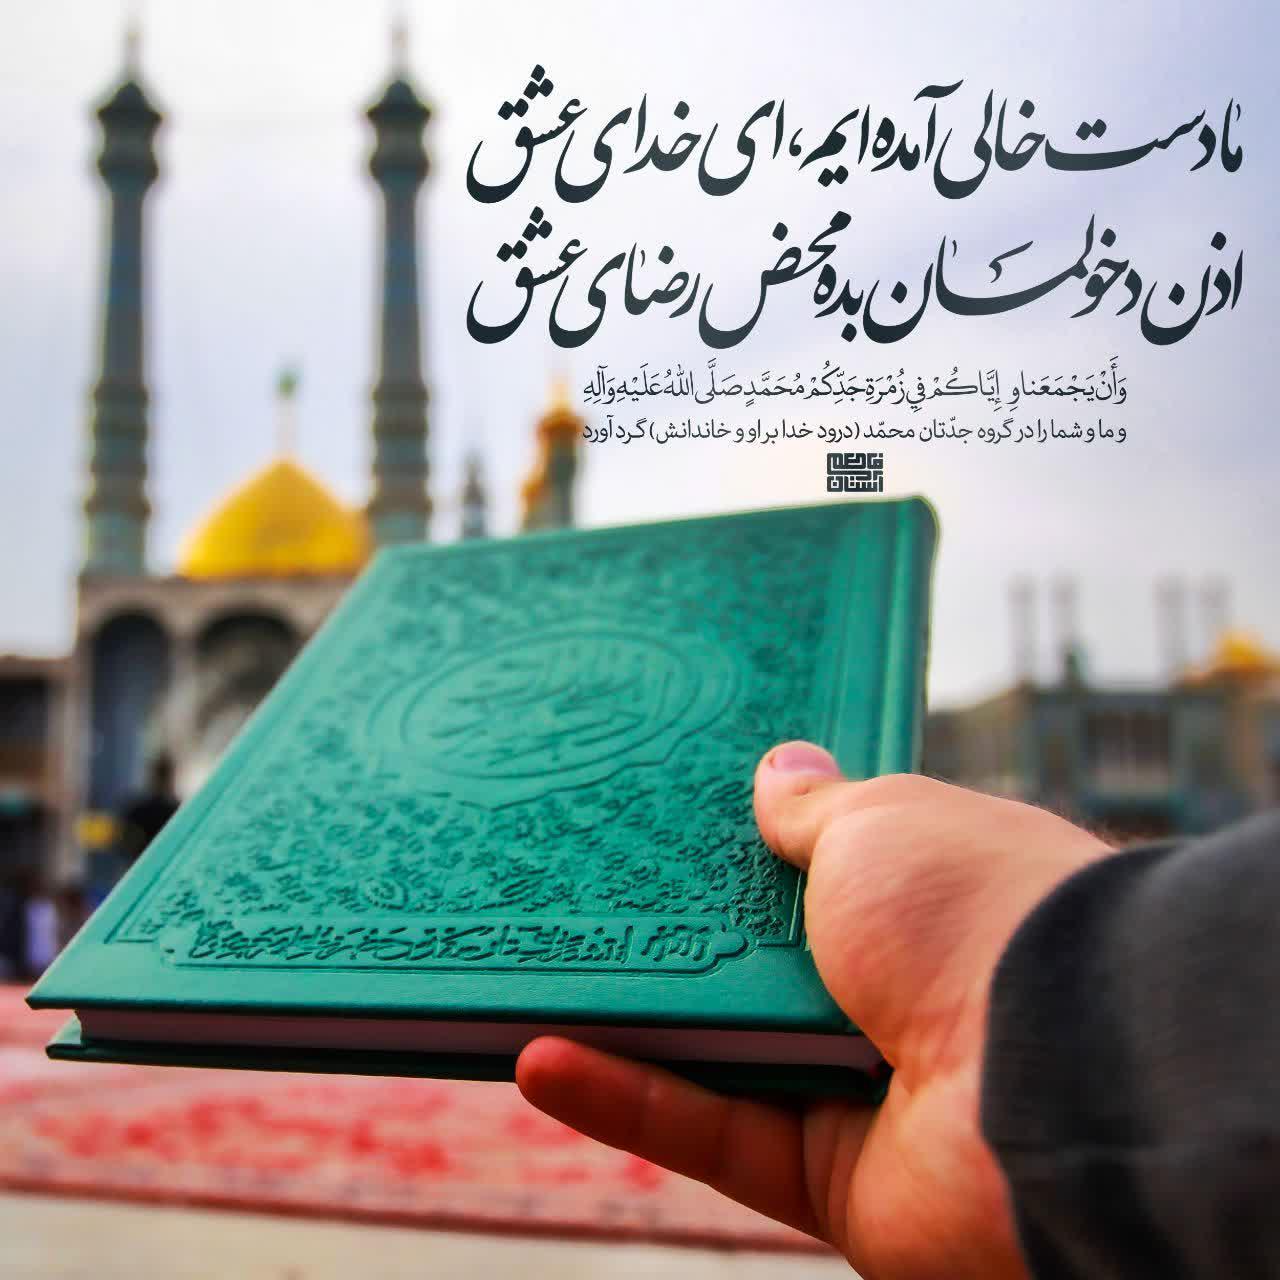 ما دست خالی آمده‌ایم، ای خدای عشق
اذن دخولمان بده محض رضای عشق
وَأَنْ يَجْمَعَنا وَ إِيَّاكُمْ فِي زُمْرَةِ جَدِّكُمْ مُحَمَّدٍ صَلَّى اللهُ عَلَيْهِ وَآلِهِ
و ما و شما را در گروه جدّتان محمّد (درود خدا بر او و خاندانش) گرد آورد